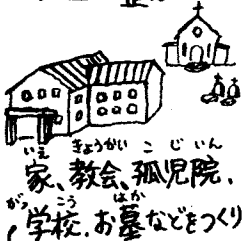 家、教会、孤児院、
学校、お墓などをつくり